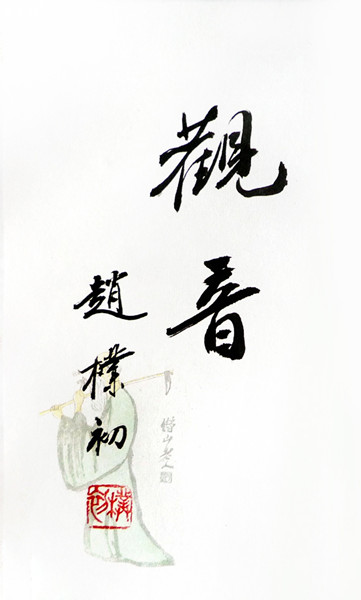 觀音
趙樸初